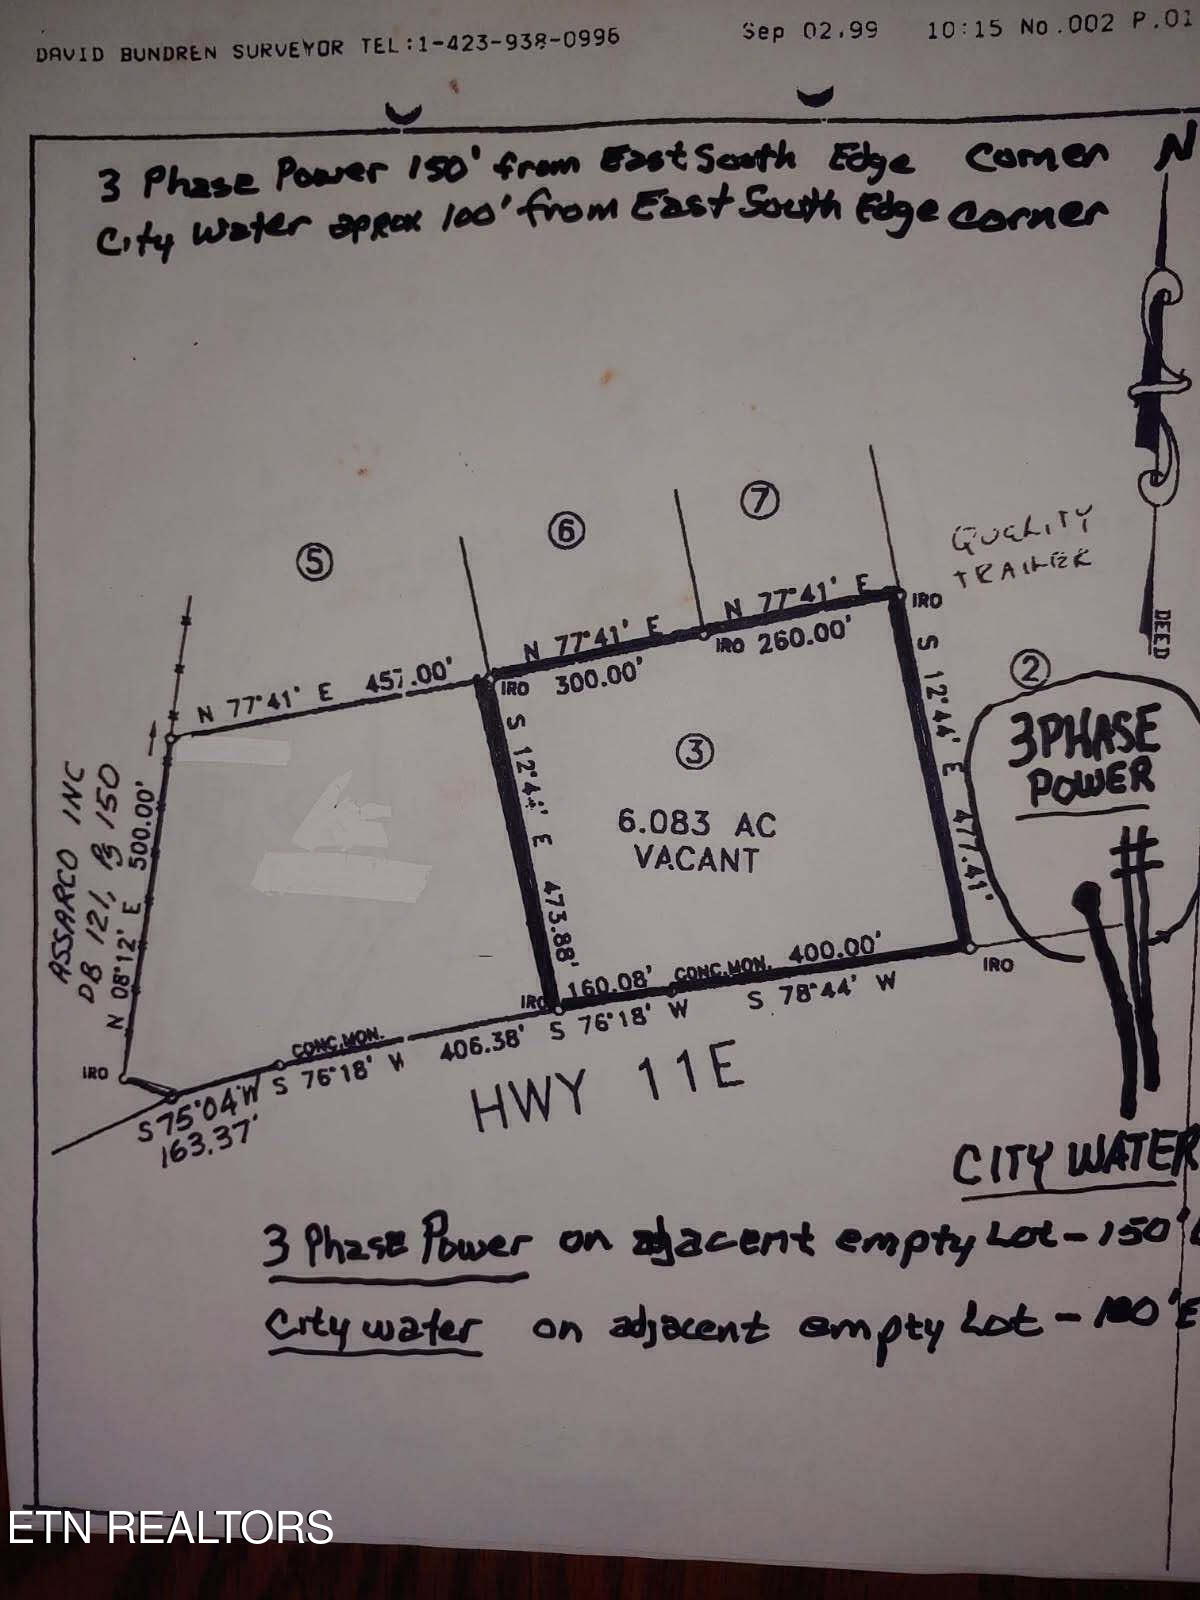 DAVID BUNDREN SURVEYOR TEL:1-423-938-0996
Sep 02,99 10:15 No.002 P.01
3 Phase Power 150' from East South Edge Corner
City Water aprox 100' from East South Edge Corner
N
DEED
QUALITY
TRAILER
5
6
7
2
3 PHASE
POWER
N 77°41' E 457.00'
N 77°41' E
300.00'
N 77°41' E
260.00'
IRO
IRO
IRO
S 12°44' E 473.88'
S 12°44' E 477.41'
3
6.083 AC
VACANT
ASSARCO INC
DB 121, Pg 150
N 08°12' E 500.00'
IRO
IRO
IRO
160.08'
CONC.MON.
400.00'
S 76°18' W
S 78°44' W
CONC.MON.
S 76°18' W
406.38'
S 75°04' W
163.37'
HWY 11E
CITY WATER
3 Phase Power on adjacent empty Lot - 150'
City water on adjacent empty Lot - 100' E
ETN REALTORS